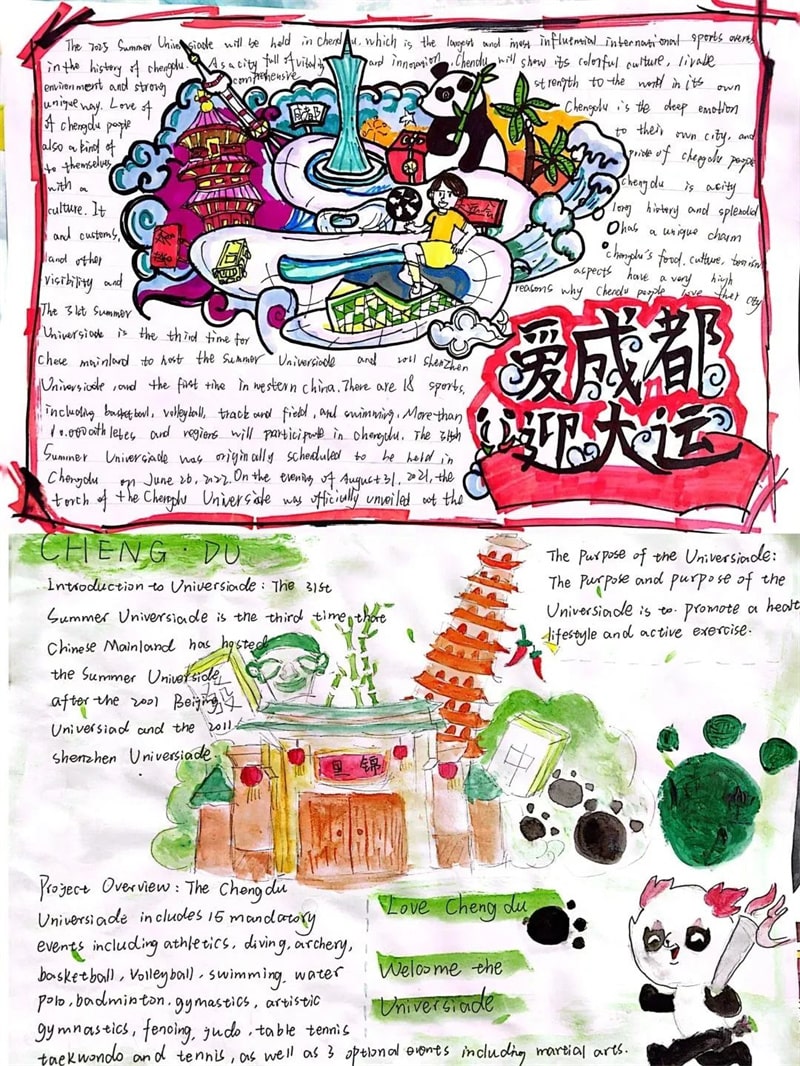 The 2023 Summer Universiade will be held in Chengdu, which is the largest and most influential international sports events
in the history of chengdu. As a city full of vitality and innovation, Chendu will show its colorful culture, livable
environment and strong comprehensive strength to the world in its own
unique way. Love of Chengdu is the deep emotion
of Chengdu people to their own city, and
also a kind of pride of chengdu people
to themselves chengdu is a city
with a long history and splendid
culture. It has a unique charm
and customs, chengdu's food, culture, tourism
land other aspects have a very high
visibility and reasons why Chendu people love their city
成都
The 31st Summer
Universiade is the third time for
chese mainland to host the Summer Universiade and 2011 Shenzhen
Universiade, and the first time in western china. There are 18 sports,
including basketball, volleyball, track and field, and swimming. More than
10,000 athletes and regiens will participate in chengdu. The 31sth
Summer Universiade was originally scheduled to be held in
Chengdu on June 26, 2022. On the evening of August 31, 2021, the
torch of the Chengdu Universiade was officially unveiled at the
爱成都
迎大运
CHENG·DU
Introduction to Universiade: The 31st
Summer Universiade is the third time there
Chinese Mainland has hosted
the Summer Universide
after the 2001 Beijing
Universiad and the 2011
shenzhen Universiade
The Purpose of the Universiade:
The Purpose and purpose of the
Universiade is to promote a healt
lifestyle and active exercise.
發
里锦
中
Project Overview: The Chengdu
Universiade includes 15 mandatory
events including athletics, diving, archery,
basketball, Volleyball, swimming, water
polo, badminton, gymastics, artistic
gymnastics, fencing, judo, table tennis
taekwondo and tennis, as well as 3 optional events including martial arts.
Love Chengdu
Welcome the
Universiade